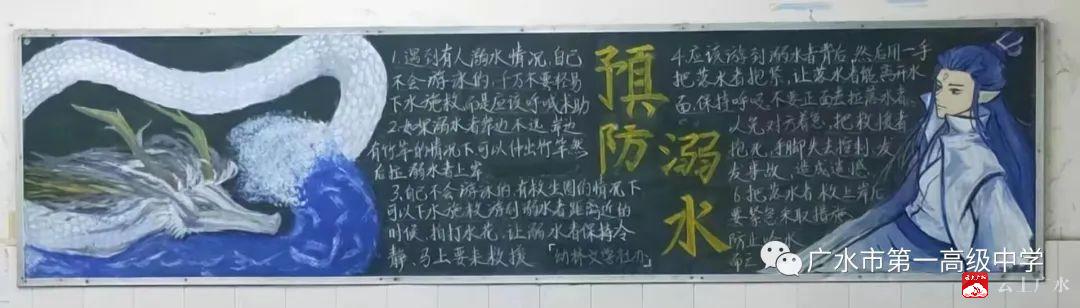 1.遇到有人溺水情况,自己
不会游泳的,千万不要轻易
下水施救,而是应该呼喊求助
2.如果溺水者岸边不远,岸边
有竹竿的情况下可以伸出竹竿,然
后拉溺水者上岸
3.自己不会游泳的,有救生圈的情况下
可以下水施救,游到溺水者距离近的
时候,拍打水花,让溺水者保持冷
静,马上要来救援
预防
溺水
4.应该游到溺水者背后,然后用一手
把落水者抱紧,让落水者能离开水
面,保持呼吸,不要正面去拉落水者,
以免对方着急,把救援者
抱死,手脚失去控制,发
发事故,造成遗憾
6.把落水者救上岸后
要紧急采取措施
防止
广水市第一高级中学
云上广水